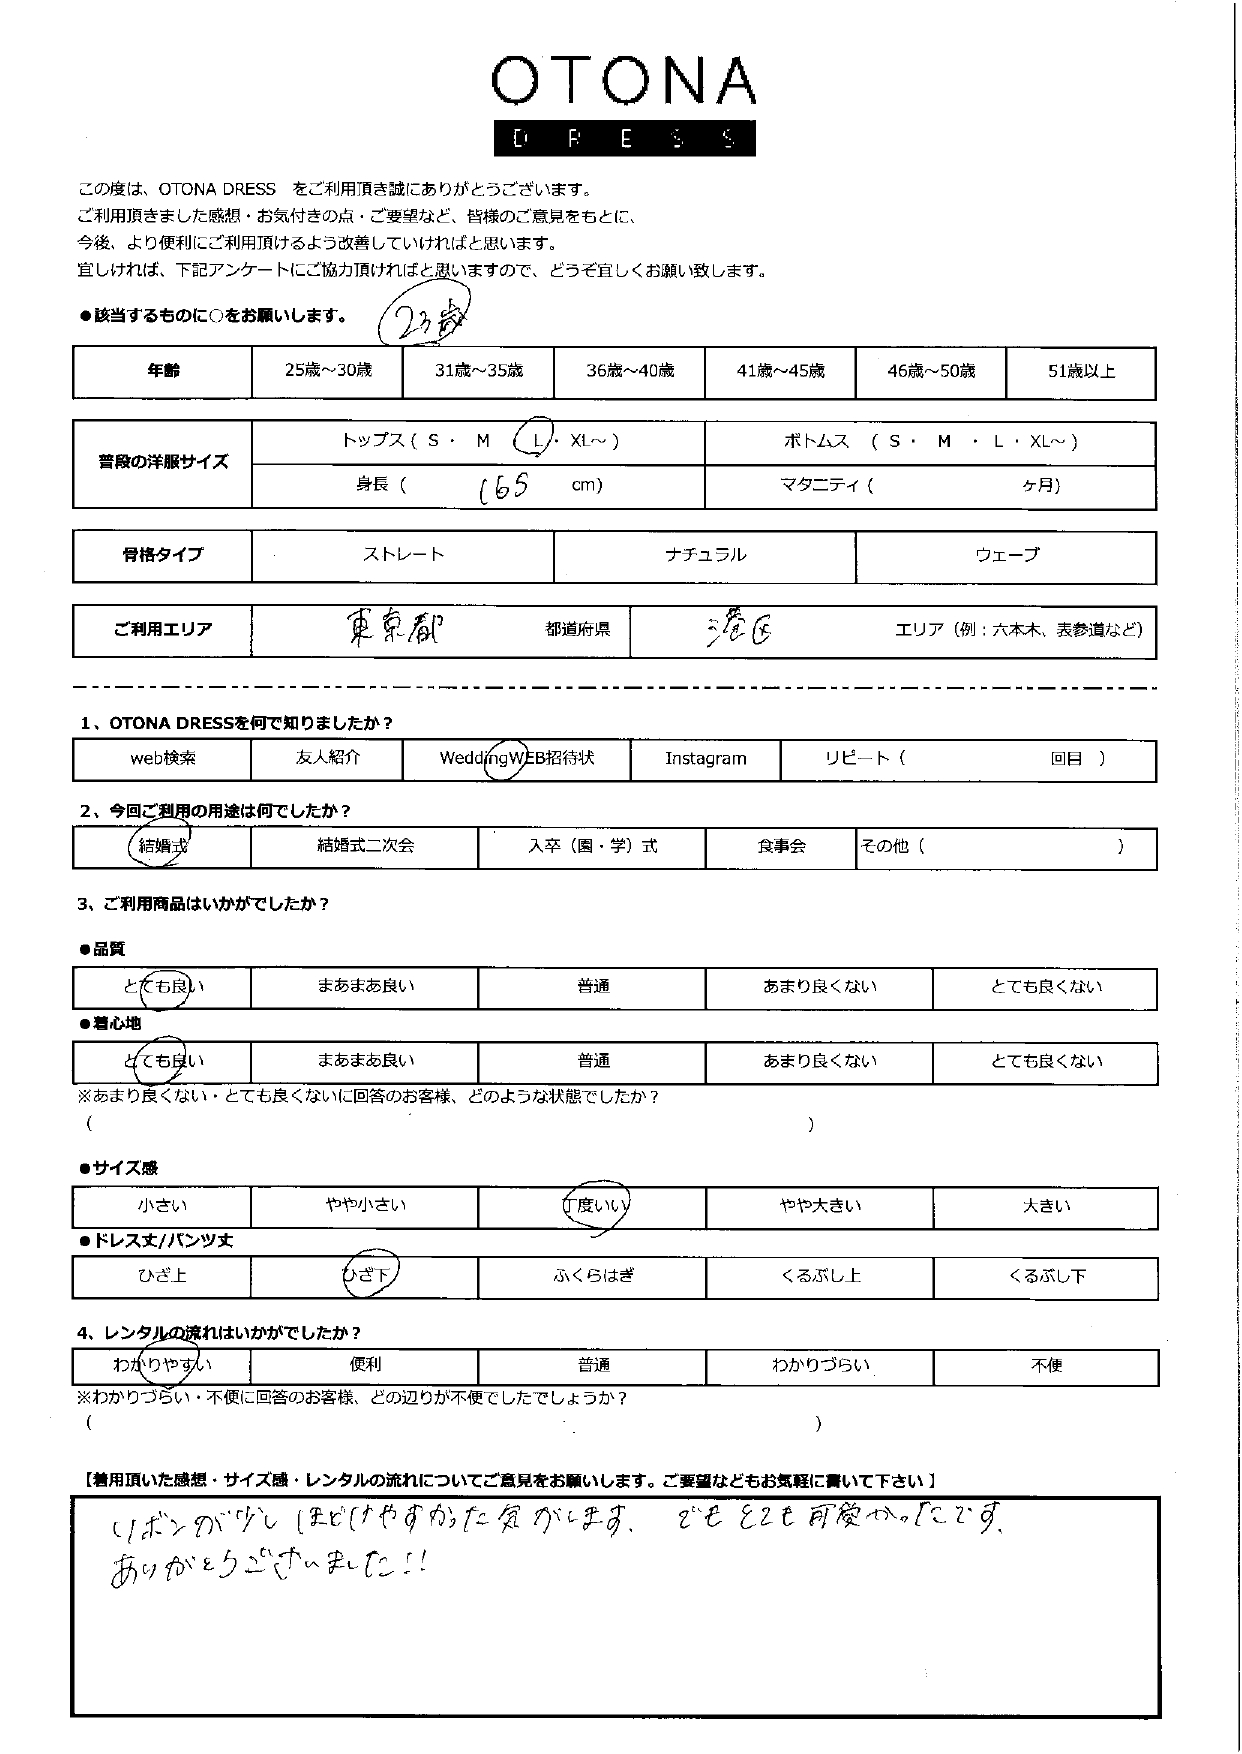 OTONA
DRESS
この度は、OTONA DRESS をご利用頂き誠にありがとうございます。
ご利用頂きました感想・お気付きの点・ご要望など、皆様のご意見をもとに、
今後、より便利にご利用頂けるよう改善していければと思います。
宜しければ、下記アンケートにご協力頂ければと思いますので、どうぞ宜しくお願い致します。
●該当するものに○をお願いします。 23歳
年齢 25歳～30歳 31歳～35歳 36歳～40歳 41歳～45歳 46歳～50歳 51歳以上
普段の洋服サイズ トップス ( S ・ M L ・ XL～ ) ボトムス ( S ・ M ・ L ・ XL～ )
身長 ( 165 cm) マタニティ ( ヶ月)
骨格タイプ ストレート ナチュラル ウェーブ
ご利用エリア 東京都 都道府県 港区 エリア（例：六本木、表参道など）
1、OTONA DRESSを何で知りましたか？
web検索 友人紹介 WeddingWEB招待状 Instagram リピート（ 回目 ）
2、今回ご利用の用途は何でしたか？
結婚式 結婚式二次会 入卒（園・学）式 食事会 その他（ ）
3、ご利用商品はいかがでしたか？
●品質
とても良い まあまあ良い 普通 あまり良くない とても良くない
●着心地
とても良い まあまあ良い 普通 あまり良くない とても良くない
※あまり良くない・とても良くないに回答のお客様、どのような状態でしたか？
( )
●サイズ感
小さい やや小さい 丁度いい やや大きい 大きい
●ドレス丈/パンツ丈
ひざ上 ひざ下 ふくらはぎ くるぶし上 くるぶし下
4、レンタルの流れはいかがでしたか？
わかりやすい 便利 普通 わかりづらい 不便
※わかりづらい・不便に回答のお客様、どの辺りが不便でしたでしょうか？
( )
【着用頂いた感想・サイズ感・レンタルの流れについてご意見をお願いします。ご要望などもお気軽に書いて下さい】
リボンが少しほどけやすかった気がします、 でもとても可愛かったです、
ありがとうございました!!